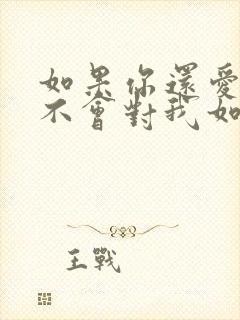 如果你還愛
不會對我如
王戰